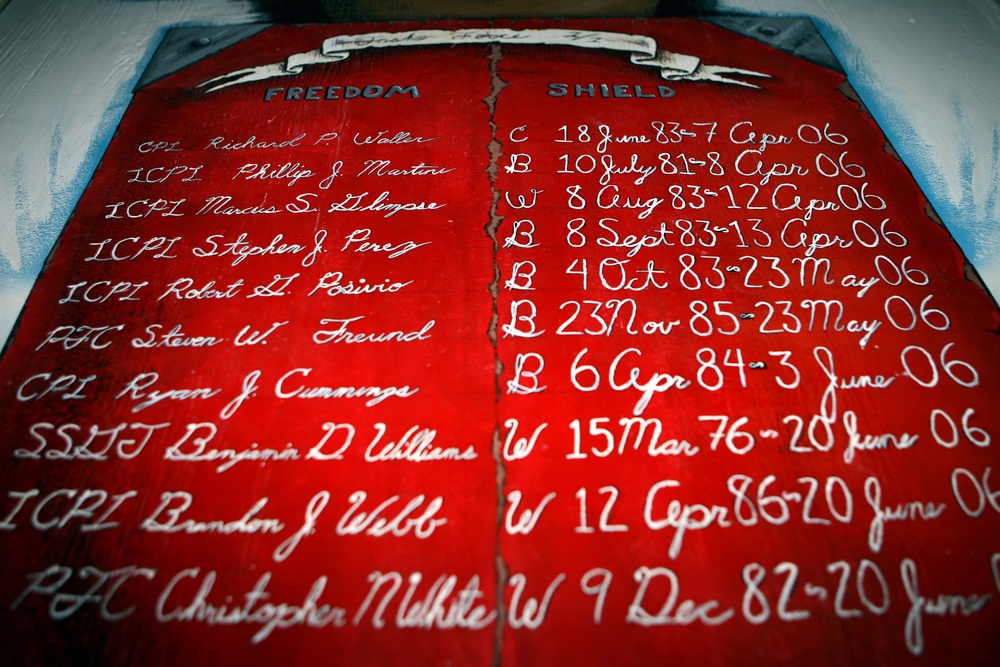 Task Force 3/1
FREEDOM SHIELD
CPL Richard P. Waller C 18 June 83-7 Apr 06
LCPL Phillip J. Martini B 10 July 81-8 Apr 06
LCPL Marcus S. Glimpse W 8 Aug 83-12 Apr 06
LCPL Stephen J. Perez B 8 Sept 83-13 Apr 06
LCPL Robert G. Posivio B 4 Oct 83-23 May 06
PFC Steven W. Freund B 23 Nov 85-23 May 06
CPL Ryan J. Cummings B 6 Apr 84-3 June 06
SSGT Benjamin D. Williams W 15 Mar 76-20 June 06
LCPL Brandon J. Webb W 12 Apr 86-20 June 06
PFC Christopher N White W 9 Dec 82-20 June